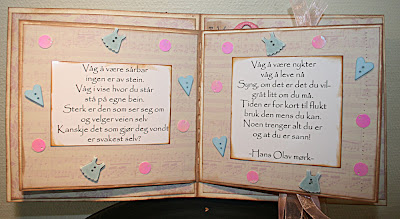 Våg å være sårbar
ingen er av stein.
Våg i vise hvor du står
stå på egne bein.
Sterk er den som ser seg om
og velger veien selv
Kanskje det som gjør deg vondt
er svakest selv?
Våg å være nykter
våg å leve nå
Syng, om det er det du vil-
gråt litt om du må.
Tiden er for kort til flukt
bruk den mens du kan.
Noen trenger alt du er
og at du er sann!
-Hans Olav mørk-